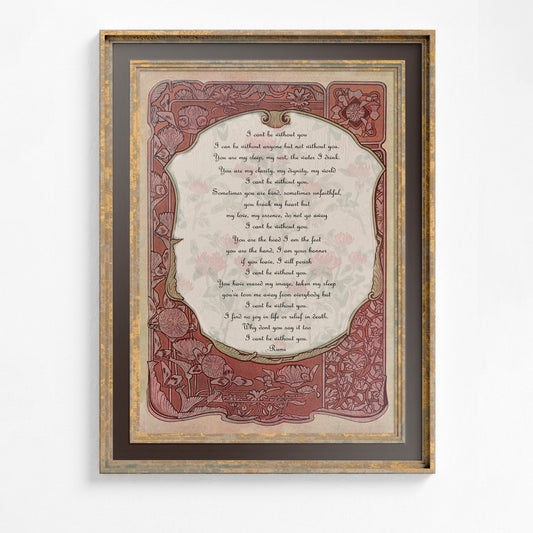 I cant be without you
I can be without anyone but not without you.
You are my sleep, my rest, the water I drink.
You are my clarity, my dignity, my world
I cant be without you.
Sometimes you are kind, sometimes unfaithful,
you break my heart but
my love, my essence, do not go away
I cant be without you.
You are the head I am the feet
you are the hand, I am your banner
if you leave, I will perish
I cant be without you.
You have erased my image, taken my sleep
you've torn me away from everybody but
I cant be without you.
I find no joy in life or relief in death.
Why dont you say it too
I cant be without you.
Rumi